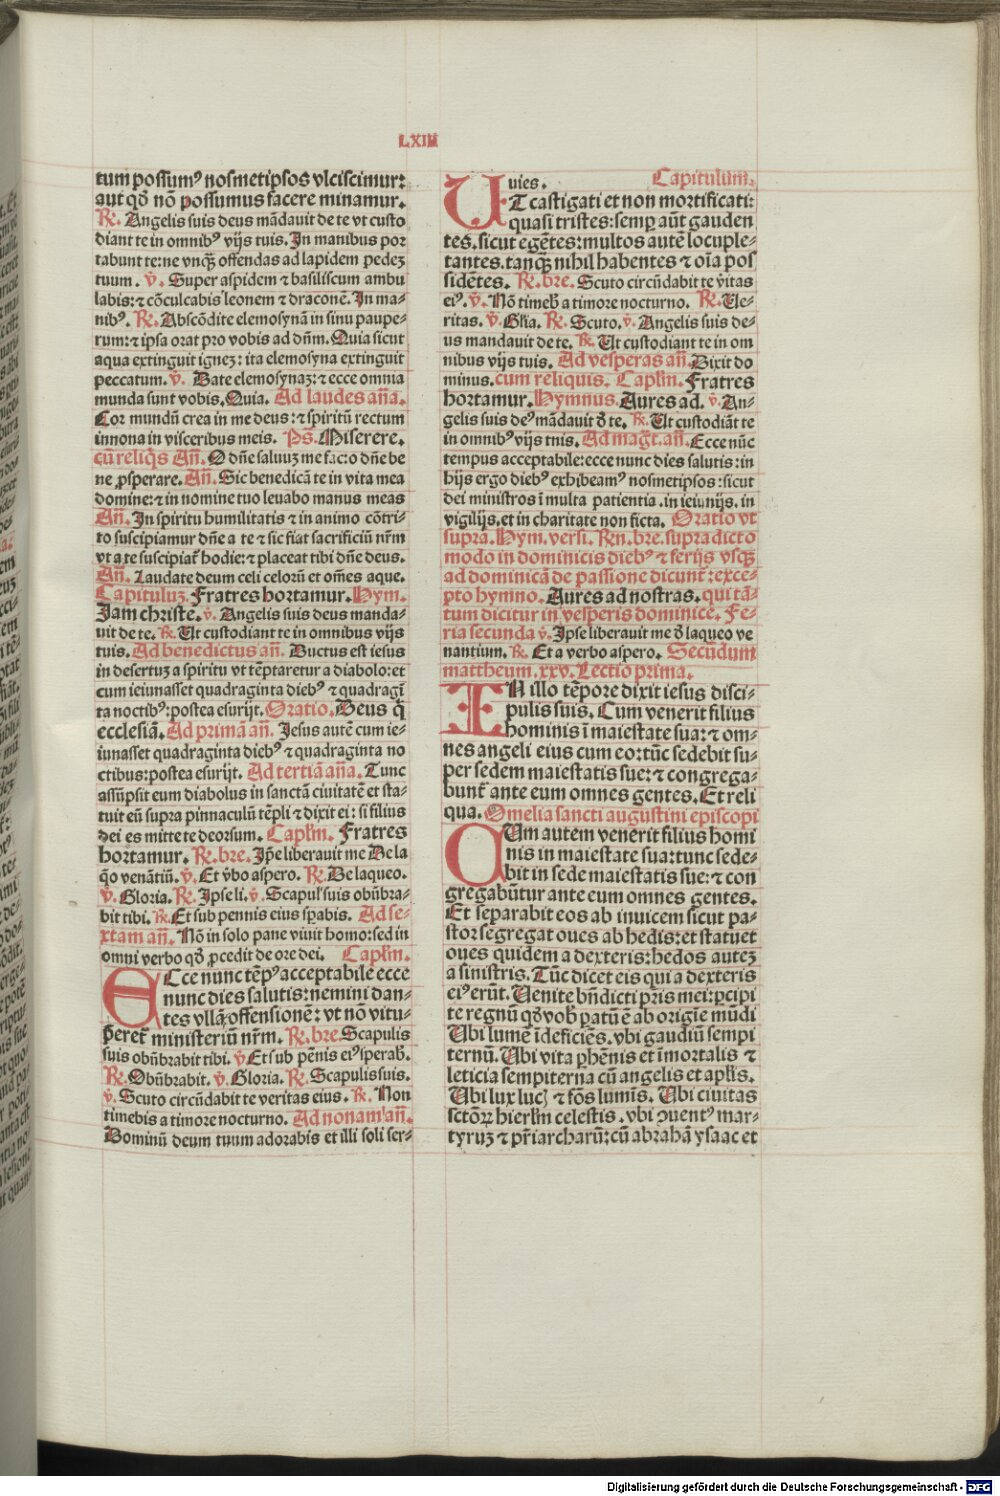 LXIII
tum possumꝰ nosmetipsos vlciscimur:
aut qd̓ nō possumus facere minamur.
R̷. Angelis suis deus mādauit de te vt custo
diant te in omnibꝰ vijs tuis. In manibus por
tabunt te: ne vnqꝫ offendas ad lapidem pedeꝫ
tuum. v̓. Super aspidem ⁊ basiliscum ambu
labis: ⁊ cōculcabis leonem ⁊ draconē. In ma-
nibꝰ. R̷. Abscōdite elemosynā in sinu paupe-
rum: ⁊ ipsa orat pro vobis ad dn̄m. Quia sicut
aqua extinguit igneꝫ: ita elemosyna extinguit
peccatum. v̓. Date elemosynaꝫ: ⁊ ecce omnia
munda sunt vobis. Quia. Ad laudes an̄a.
Cor mundū crea in me deus: ⁊ spiritū rectum
innona in visceribus meis. Ps̄. Miserere.
cū reliq̄s An̄. O dn̄e saluuꝫ me fac: o dn̄e be
ne ꝓsperare. An̄. Sic benedicā te in vita mea
domine: ⁊ in nomine tuo leuabo manus meas
An̄. In spiritu humilitatis ⁊ in animo cōtri-
to suscipiamur dn̄e a te ⁊ sic fiat sacrificiū nr̄m
vt a te suscipiat̄ hodie: ⁊ placeat tibi dn̄e deus.
An̄. Laudate deum celi celorū et om̄es aque.
Capituluꝫ. Fratres hortamur. Hym.
Jam christe. v̓. Angelis suis deus manda-
uit de te. R̷. Ut custodiant te in omnibus vijs
tuis. Ad benedictus an̄. Ductus est iesus
in desertuꝫ a spiritu vt tēptaretur a diabolo: et
cum ieiunasset quadraginta diebꝰ ⁊ quadragī
ta noctibꝰ: postea esurijt. Oratio. Deus q̄
ecclesiā. Ad primā an̄. Jesus autē cum ie-
iunasset quadraginta diebꝰ ⁊ quadraginta no
ctibus: postea esurijt. Ad tertiā an̄a. Tunc
assūpsit eum diabolus in sanctā ciuitatē et sta-
tuit eū supra pinnaculū tēpli ⁊ dixit ei: si filius
dei es mitte te deorsum. Capl̄m. Fratres
hortamur. R̷. bre. Ip̄e liberauit me De la
q̄o venātiū. v̓. Et v̓bo aspero. R̷. De laqueo.
v̓. Gloria. R̷. Ipse li. v̓. Scapul̓ suis obūbra-
bit tibi. R̷. Et sub pennis eius sp̄abis. Ad se-
xtam an̄. Nō in solo pane viuit homo: sed in
omni verbo qd̓ ꝓcedit de ore dei. Capl̄m.
ECce nunc tēpꝰ acceptabile ecce
nunc dies salutis: nemini dan-
tes vllā offensionē: vt nō vitu-
peret̄ ministeriū nr̄m. R̷. bre. Scapulis
suis obūbrabit tibi. v̓ Et sub pēnis eiꝰ sperab̄.
R̷. Obūbrabit. v̓. Gloria. R̷. Scapulis suis.
v̓. Scuto circūdabit te veritas eius. R̷. Non
timebis a timore nocturno. Ad nonam an̄.
Dominū deum tuum adorabis et illi soli ser-
uies. Capitulum.
UT castigati et non mortificati:
quasi tristes: semꝑ aūt gauden
tes. sicut egētes: multos autē locuple-
tantes. tanqꝫ nihil habentes ⁊ oīa pos
sidētes. R̷. bre. Scuto circūdabit te v̓itas
eiꝰ. v̓. Nō timeb̄ a timore nocturno. R̷. Ue-
ritas. v̓. Gl̄ia. R̷. Scuto. v̓. Angelis suis de-
us mandauit de te. R̷. Ut custodiant te in om
nibus vijs tuis. Ad vesperas an̄. Dixit do
minus. cum reliquis. Capl̄m. Fratres
hortamur. Hymnus. Aures ad. v̓. An-
gelis suis deꝰ mādauit d̓ te. R̷. Ut custodiāt te
in omnibꝰ vijs tnis. Ad mag̅t. an̄. Ecce nūc
tempus acceptabile: ecce nunc dies salutis: in
hijs ergo diebꝰ exhibeamꝰ nosmetipsos: sicut
dei ministros ī multa patientia. in ieiunijs. in
vigilijs. et in charitate non ficta. Oratio vt
supra. Hym. versi. Rn̄. bre. supradicto
modo in dominicis diebꝰ ⁊ ferijs vsqꝫ
ad dominicā de passione dicunt̄: exce-
pto hymno. Aures ad nostras. qui tā-
tum dicitur in vesperis dominice. Fe-
ria secunda v̓. Ipse liberauit me d̓ laqueo ve
nantium. R̷. Et a verbo aspero. Secūdum
mattheum. xxv. Lectio prima.
IN illo tēpore dixit iesus disci-
pulis suis. Cum venerit filius
hominis ī maiestate sua: ⁊ om-
nes angeli eius cum eo: tūc sedebit su-
per sedem maiestatis sue: ⁊ congrega-
bunt̄ ante eum omnes gentes. Et reli
qua. Omelia sancti augustini episcopi
CUm autem venerit filius homi
nis in maiestate sua: tunc sede-
bit in sede maiestatis sue: ⁊ con
gregabūtur ante eum omnes gentes.
Et separabit eos ab inuicem sicut pa-
stor segregat oues ab hedis: et statuet
oues quidem a dexteris: hedos auteꝫ
a sinistris. Tūc dicet eis qui a dexteris
eiꝰ erūt. Uenite bn̄dicti pr̄is mei: ꝑcipi
te regnū qd̓ vob̓ patū ē ab origīe mūdi
Ubi lumē īdeficiēs. vbi gaudiū sempi
ternū. Ubi vita ꝑhēnis et īmortalis ⁊
leticia sempiterna cū angelis et apl̄is.
Ubi lux lucꝭ ⁊ fōs lumīs. Ubi ciuitas
sctōꝝ hierl̄m celestis. vbi ꝯuentꝰ mar-
tyruꝫ ⁊ pr̄iarcharū: cū abrahā ysaac et
Digitalisierung gefördert durch die Deutsche Forschungsgemeinschaft - DFG